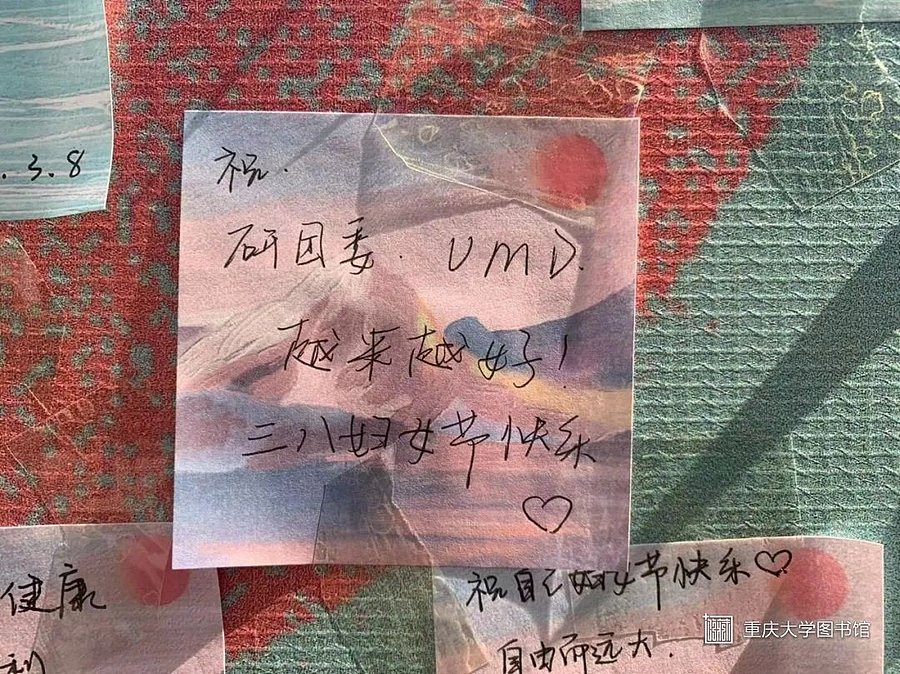 .3.8
祝.
研团委. UMD.
越来越好!
三八妇女节快乐
♡
健康
利
祝自己妇女节快乐♡
自由而远大.
重庆大学图书馆